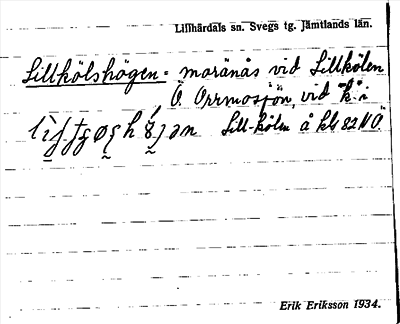 Lillhärdals sn. Svegs tg. Jämtlands län.
Lillkölshögen = moränås vid Lillkölen
Ö. Orrmosjön, vid "k" i
Lill-kölen å kbl 82 N Ö
Erik Eriksson 1934.